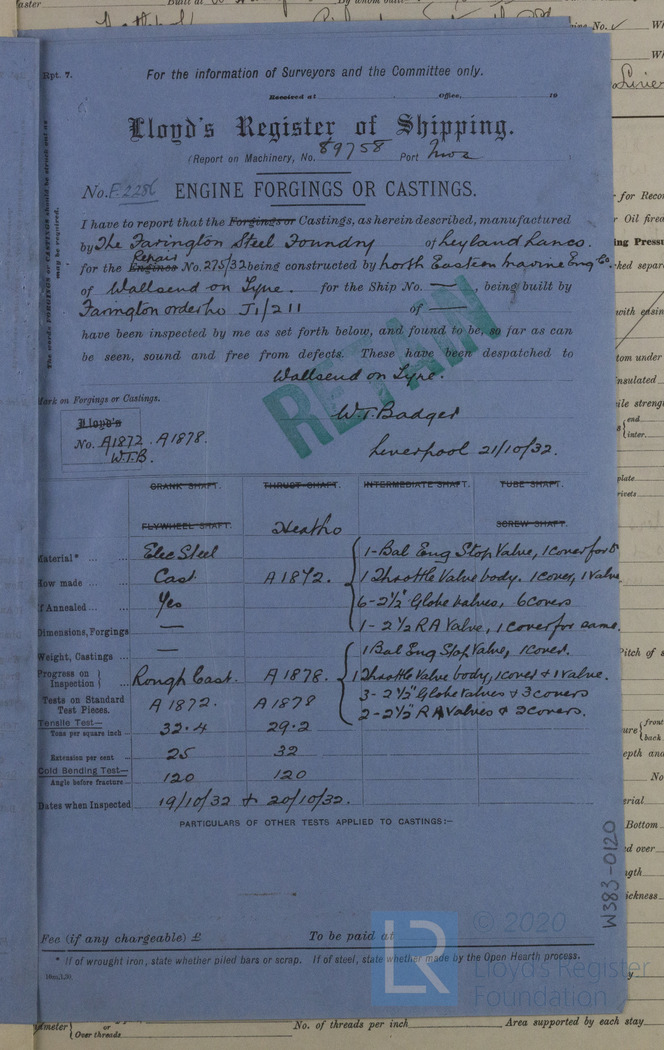 Rpt. 7.
For the information of Surveyors and the Committee only.
Received at Office, 19
Lloyd's Register of Shipping.
(Report on Machinery, No. 89758 Port Nwc
No. F.2286 ENGINE FORGINGS OR CASTINGS.
The words FORGINGS or CASTINGS should be struck out as may be required.
I have to report that the Forgings or Castings, as herein described, manufactured
by The Farington Steel Foundry of Leyland Lancs.
Repairs
for the Engines No. 275/32 being constructed by North Eastern Marine Eng Co.
of Wallsend on Tyne. for the Ship No. — , being built by
Farington order No J1/211 of —
have been inspected by me as set forth below, and found to be, so far as can
be seen, sound and free from defects. These have been despatched to
Wallsend on Tyne.
RETAIN
Mark on Forgings or Castings.
W.T. Badger
Lloyd's
No. A1872. A1878.
W.T.B.
Liverpool 21/10/32.
CRANK SHAFT. THRUST SHAFT. INTERMEDIATE SHAFT. TUBE SHAFT.
FLYWHEEL SHAFT. Heat No SCREW SHAFT.
Material* Elec Steel 1-Bal Eng Stop Valve, 1 cover for Do
How made Cast A1872. 1 Throttle Valve body. 1 cover, 1 valve
If Annealed Yes 6-2½" Globe valves, 6 covers
Dimensions, Forgings — 1-2½ RA Valve, 1 cover for same.
Weight, Castings — 1 Bal Eng Stop Valve, 1 cover.
Progress on Inspection Rough Cast. A1878. 1 Throttle Valve body, 1 cover & 1 valve.
3-2½" Globe valves & 3 covers
Tests on Standard Test Pieces. A1872. A1878 2-2½" RA Valves & 2 covers.
Tensile Test—
Tons per square inch 32.4 29.2
Extension per cent 25 32
Cold Bending Test—
Angle before fracture 120 120
Dates when Inspected 19/10/32 + 20/10/32.
PARTICULARS OF OTHER TESTS APPLIED TO CASTINGS:—
W383-0120
Fee (if any chargeable) £ To be paid at
* If of wrought iron, state whether piled bars or scrap. If of steel, state whether made by the Open Hearth process.
LR
© 2020
Lloyd's Register
Foundation
Over threads
No. of threads per inch
Area supported by each stay